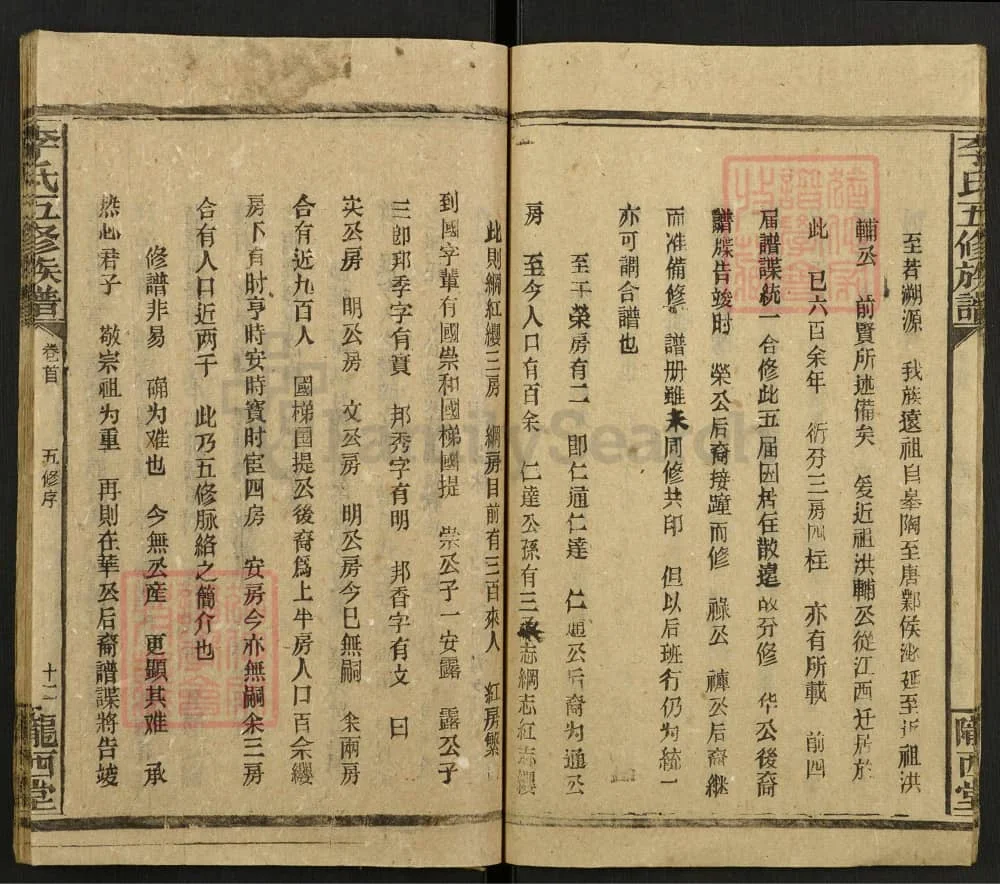 李氏五修族譜
隴西堂
至若溯源 我族遠祖自皋陶至唐鄴侯泌延至近祖洪
輔公 前賢所述備矣 爰近祖洪輔公從江西迁居於
此 已六百余年 衍分三房四柱 亦有所載 前四
届譜諜統一合修此五届因居住散遠故分修 华公後裔
譜牒告竣时 榮公后裔接踵而修 祿公 公后裔継
而准備修 譜册雖未同修共印 但以后班行仍为統一
亦可謂合譜也
至于榮房有二 即仁通仁達 仁通公后裔为通公
房 至今人口有百余 仁達公孫有三 志綱志紅志纓
此則綱紅纓三房 綱房目前有三百來人 紅房繁
到國字輩有國崇和國梯國提 崇公子一安露 露公子
三郎邦季字有寳 邦秀字有明 邦香字有文 曰
实公房 明公房 文公房 明公房今已無嗣 余兩房
合有近九百人 國梯国提公後裔爲上半房人口百余纓
房下有时亨時安時寳时宦四房 安房今亦無嗣余三房
合有人口近两千 此乃五修脉络之簡介也
修譜非易 确为难也 今無公産 更顯其难 承
热心君子 敬宗祖为重 再則在華公后裔譜諜將告竣
李氏五修族譜
卷首
五修序
十二
隴西堂
FamilySearch